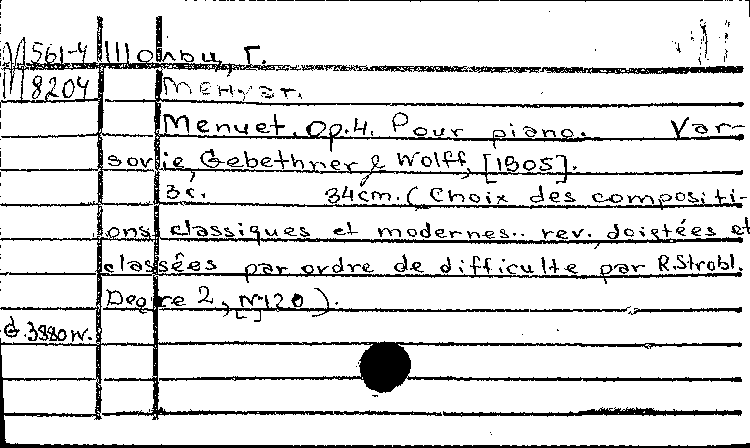 М561-4 Шольц, Г.
М8204 Менуэт.
Menuet. Op.4. Pour piano. Var-
sovie, Gebethner & Wolff, [1905].
3c. 34cm. (Choix des compositi-
ons classiques et modernes.. rev. doigtées et
classées par ordre de difficulte par R.Strobl.
Degre 2, [N120]).
G.3880W.